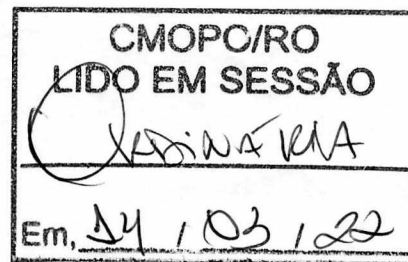 CMOPO/RO
LIDO EM SESSÃO
ORDINÁRIA
Em, 14 / 03 / 22